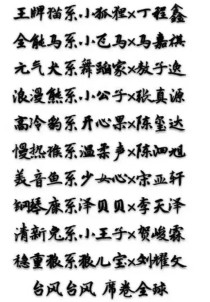 王牌猫系.小狐狸×丁程鑫
全能马系.小飞马×马嘉祺
元气犬系舞蹈家×敖子逸
浪漫熊系.小公子×张真源
高冷豹系开心果×陈玺达
慢热猴系温柔声×陈泗旭
美音鱼系少女心×宋亚轩
钢琴鹿系泽贝贝×李天泽
清新兔系.小王×贺峻霖
稳重狼系狼儿宝×刘耀文
台风台风 席卷全球